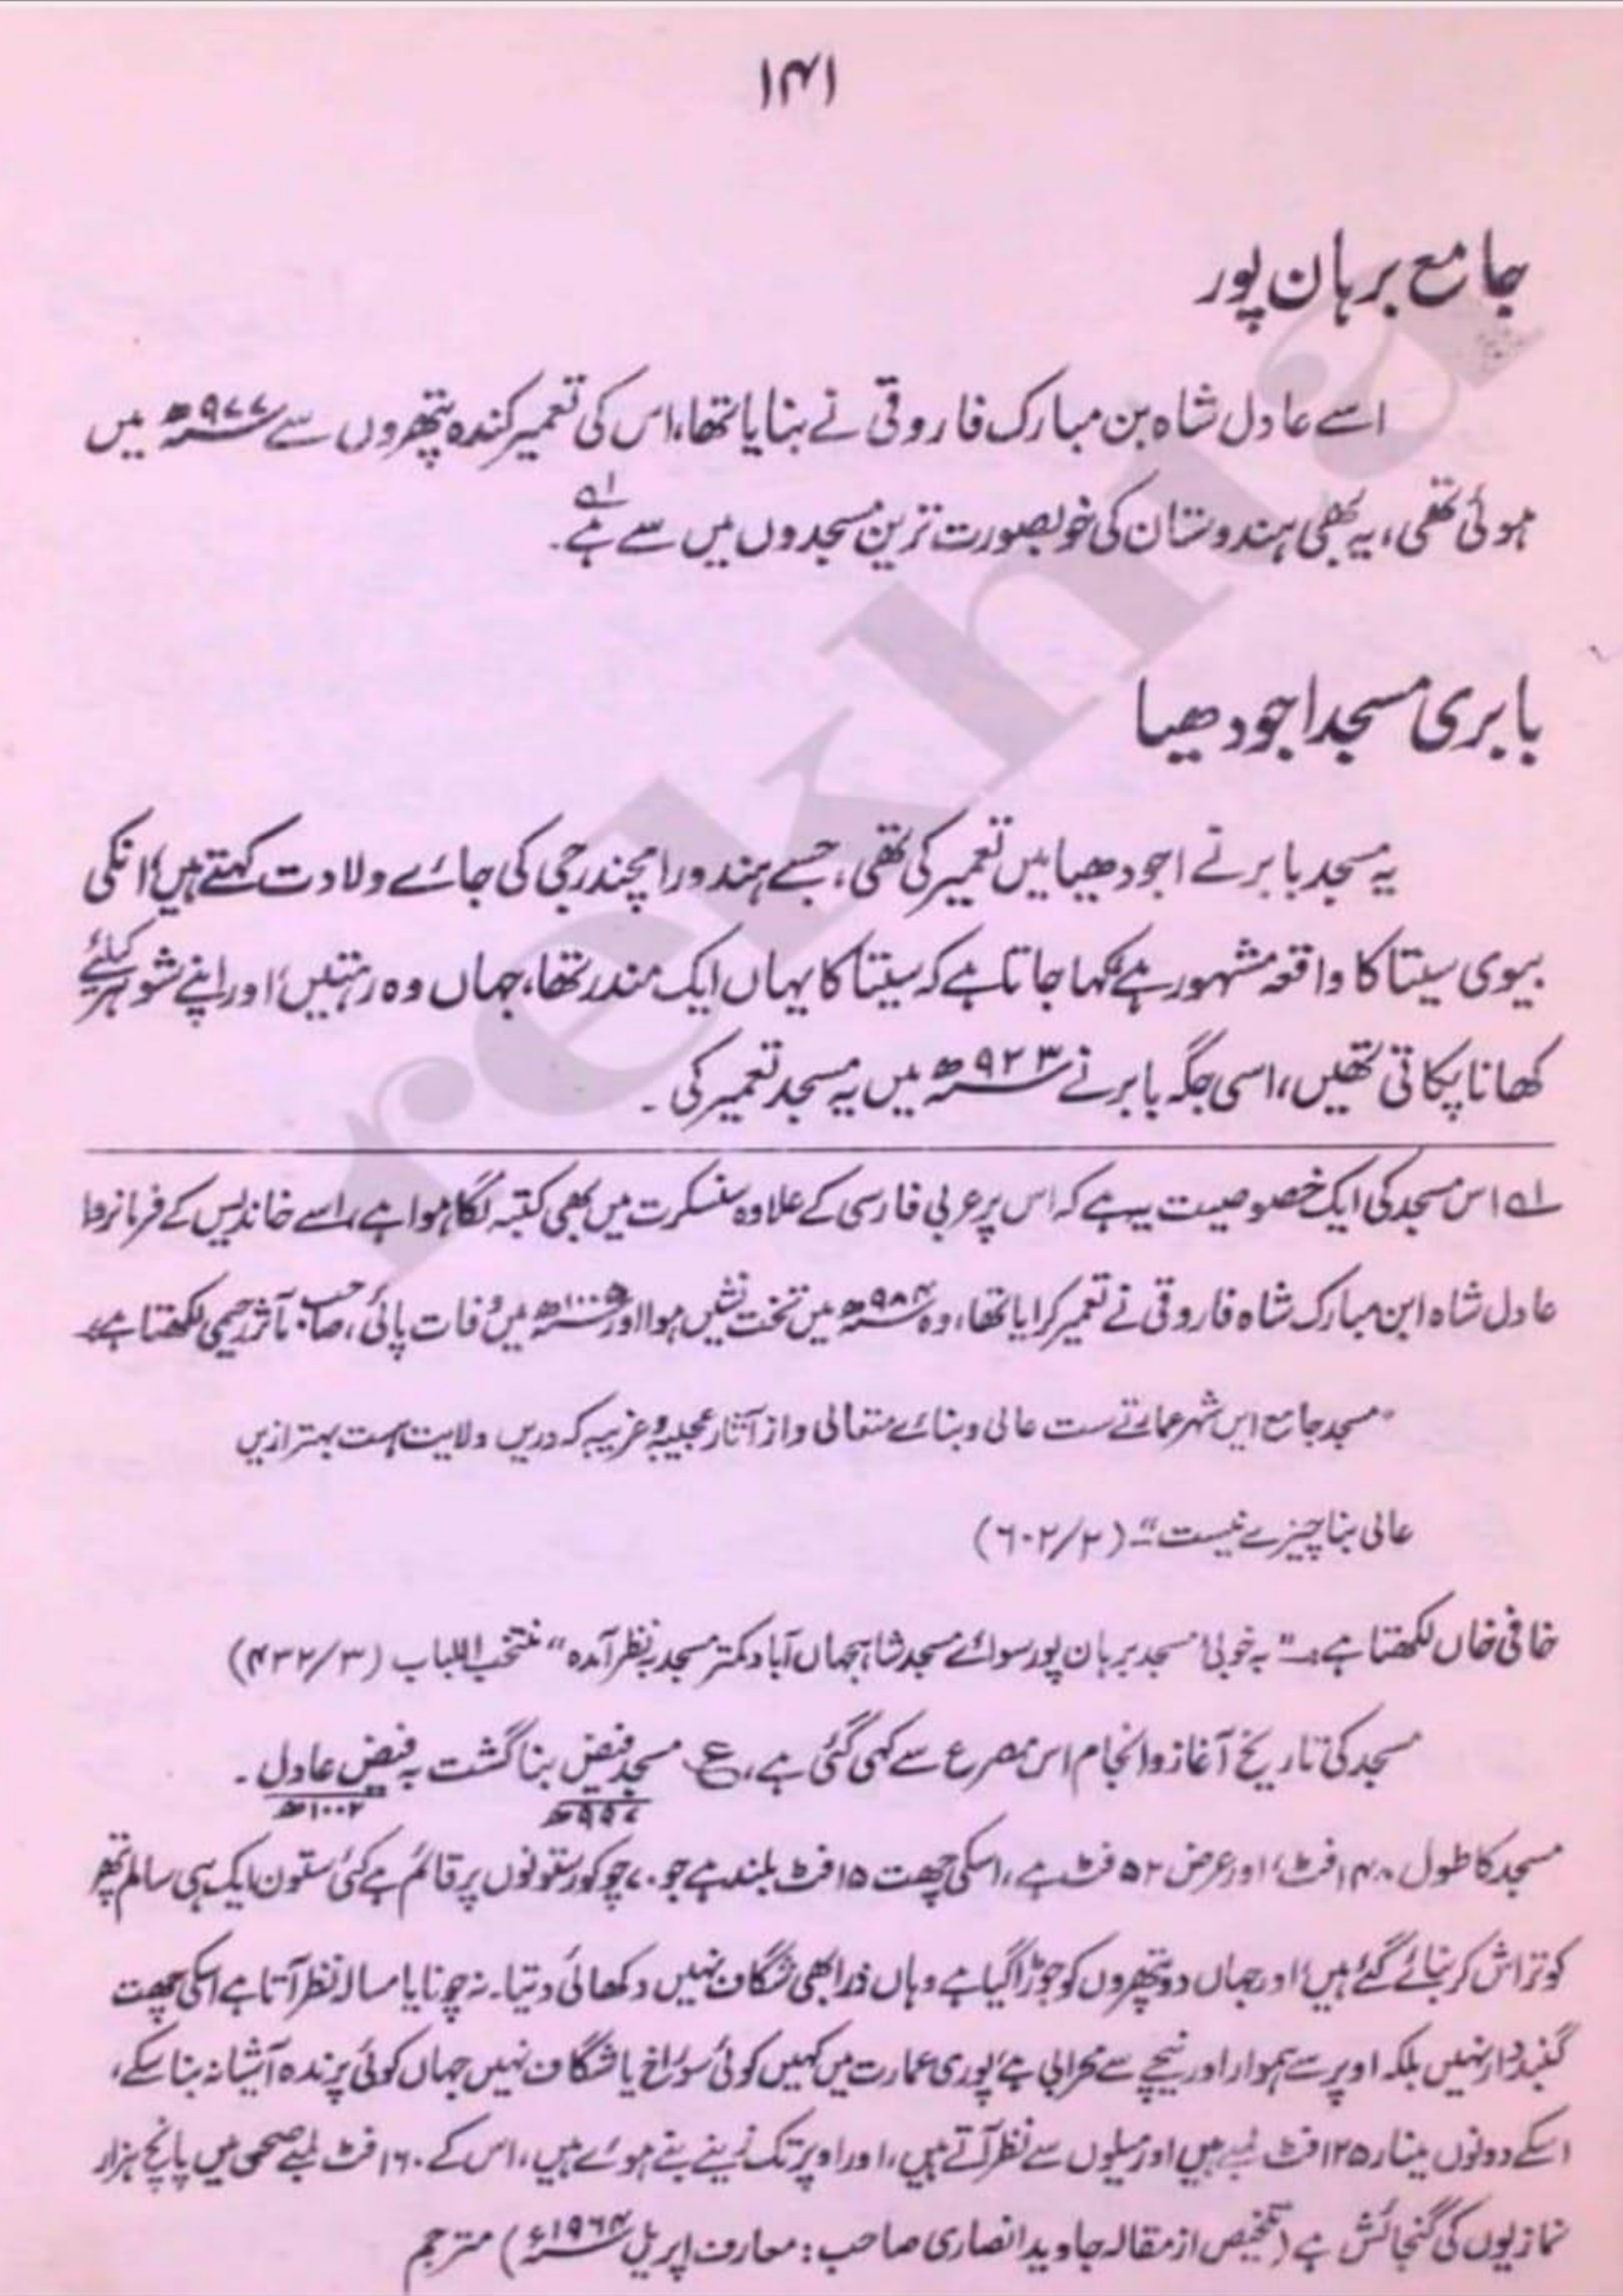 ۱۴۱
جامع برہان پور
اسے عادل شاہ بن مبارک فاروقی نے بنایا تھا، اس کی تعمیر کندہ پتھروں سے ۹۷۷ھ میں
ہوئی تھی، یہ بھی ہندوستان کی خوبصورت ترین مسجدوں میں سے ہے۔ ۱ـہ
بابری مسجد اجودھیا
یہ مسجد بابر نے اجودھیا میں تعمیر کی تھی، جسے ہندو رامچندر جی کی جائے ولادت کہتے ہیں، انکی
بیوی سیتا کا واقعہ مشہور ہے، کہا جاتا ہے کہ سیتا کا یہاں ایک مندر تھا، جہاں وہ رہتیں، اور اپنے شوہر کیلئے
کھانا پکاتی تھیں، اسی جگہ بابر نے ۹۲۳ھ میں یہ مسجد تعمیر کی ۔
۱ـہ اس مسجد کی ایک خصوصیت یہ ہے کہ اس پر عربی فارسی کے علاوہ سنسکرت میں بھی کتبہ لگا ہوا ہے، اسے خاندیس کے فرمانروا
عادل شاہ ابن مبارک شاہ فاروقی نے تعمیر کرایا تھا، وہ ۹۸۴ھ میں تخت نشیں ہوا اور ۱۰۰۵ھ میں وفات پائی، صاحب مآثر رحیمی لکھتا ہے:
”مسجد جامع ایں شہر عمارتے ست عالی و بنائے متعالی و از آثار عجیبہ و غریبہ کہ دریں ولایت ہست بہتر ازیں
عالی بنا چیزے نیست“۔ (۶۰۲/۲)
خافی خاں لکھتا ہے:۔ ”بہ خوبی مسجد برہان پور سوائے مسجد شاہجہاں آباد کمتر مسجد بہ نظر آمدہ“ منتخب اللباب (۴۳۲/۳)
مسجد کی تاریخ آغاز و انجام اس مصرع سے کہی گئی ہے، ع مسجد فیض بنا گشت بہ فیض عادل ۔
۹۹۷ھ ۱۰۰۲ھ
مسجد کا طول ۱۴۸ فٹ، اور عرض ۵۲ فٹ ہے، اسکی چھت ۱۵ فٹ بلند ہے جو ۷۰ چوکور ستونوں پر قائم ہے کئی ستون ایک ہی سالم پتھر
کو تراش کر بنائے گئے ہیں، اور جہاں دو پتھروں کو جوڑا گیا ہے وہاں ذرا بھی شگاف نہیں دکھائی دیتا۔ نہ چونا یا مسالہ نظر آتا ہے اسکی چھت
گنبد دار نہیں بلکہ اوپر سے ہموار اور نیچے سے محرابی ہے، پوری عمارت میں کہیں کوئی سوراخ یا شگاف نہیں جہاں کوئی پرندہ آشیانہ بنا سکے،
اسکے دونوں مینار ۱۲۵ فٹ لمبے ہیں اور میلوں سے نظر آتے ہیں، اور اوپر تک زینے بنے ہوئے ہیں، اس کے ۱۶۰ فٹ لمبے صحن میں پانچ ہزار
نمازیوں کی گنجائش ہے (تلخیص از مقالہ جاوید انصاری صاحب: معارف اپریل ۱۹۶۴ء) مترجم
rekhta